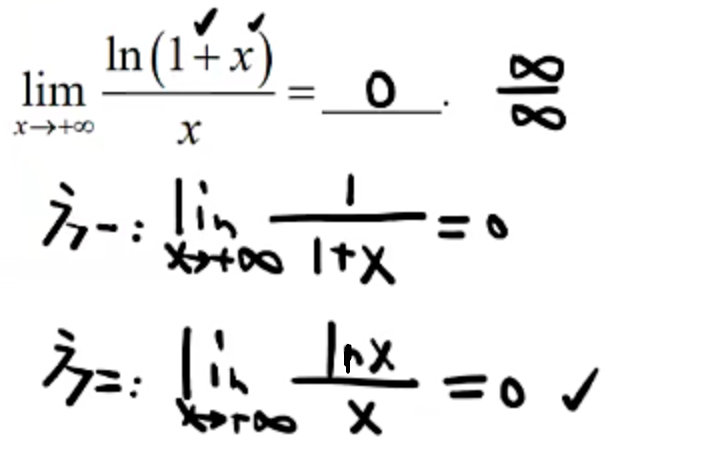 lim_{x→+∞} ln(1+x)/x = 0. ∞/∞
法一: lim_{x→+∞} 1/(1+x) = 0
法二: lim_{x→+∞} lnx/x = 0 ✓